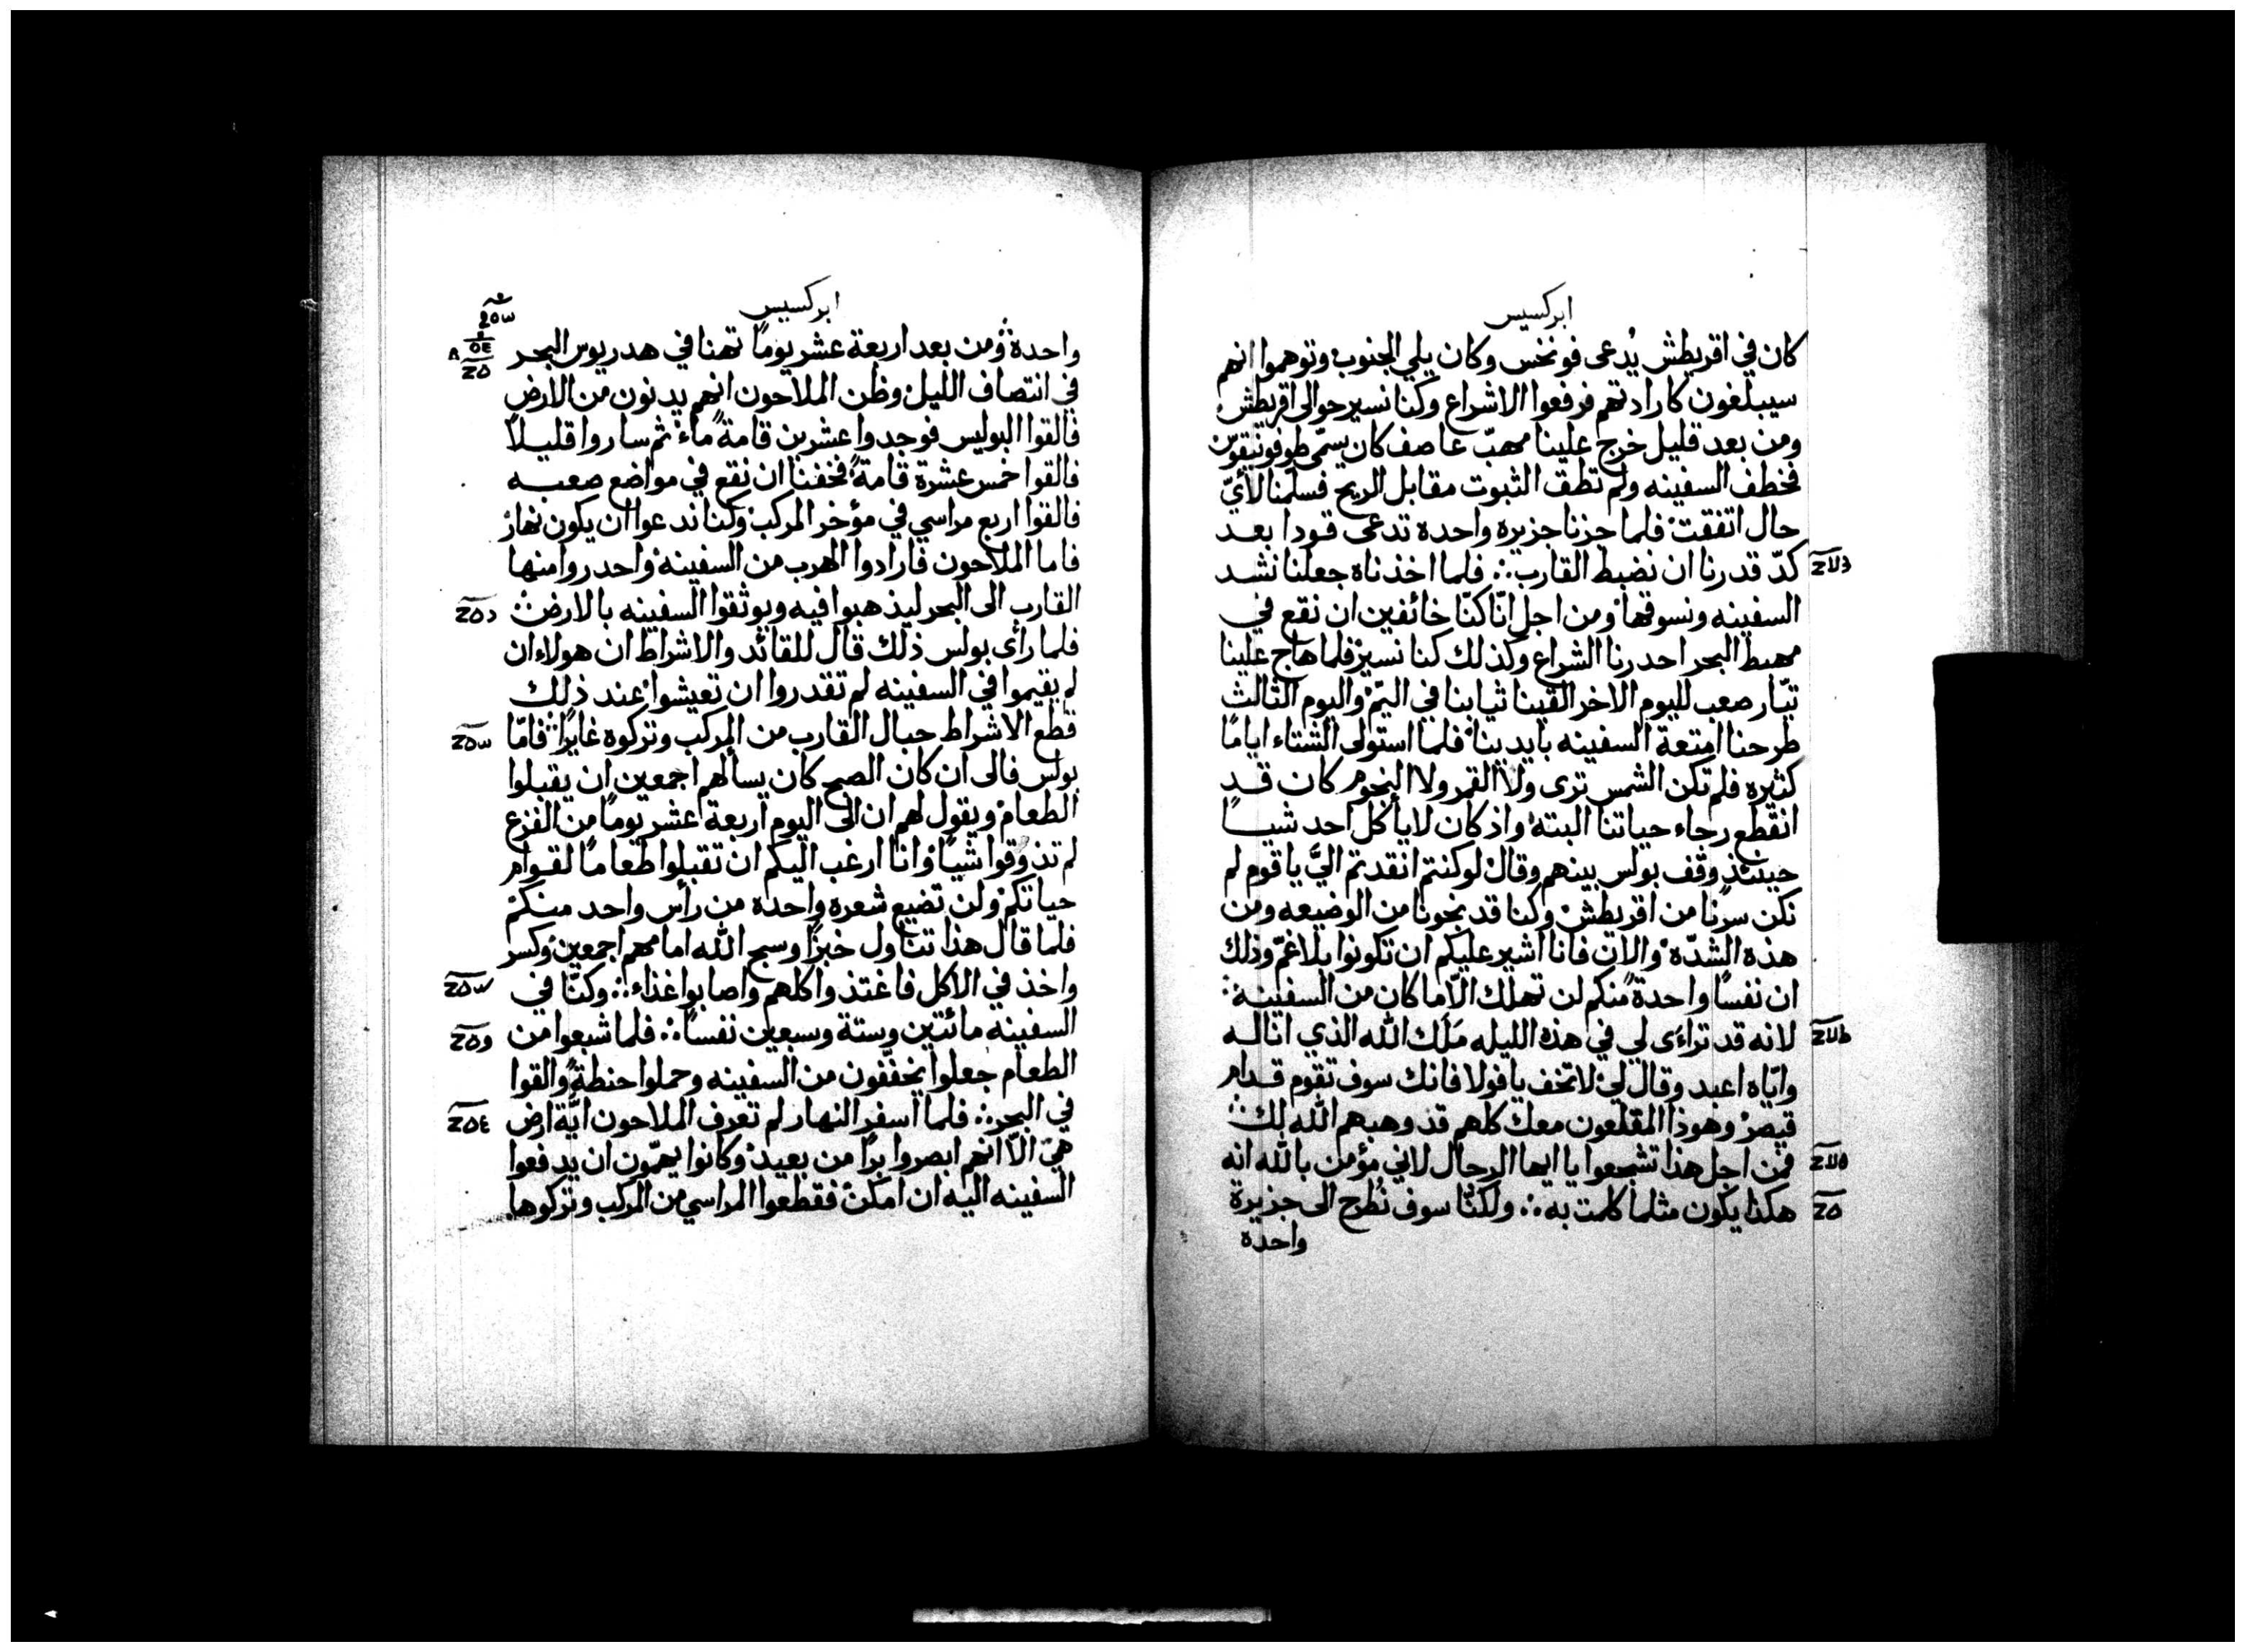 ابركسيس
كان في اقريطش يُدعى فونخس وكان يلي الجنوب وتوهموا انهم
سيبلغون كارادتهم فرفعوا الاشراع وكنا نسير حوالى اقريطش
ومن بعد قليل خرج علينا مهبّ عاصف كان يسمّى طوفونيقوس
فخطف السفينه ولم تطق الثبوت مقابل الريح فسلّمنا لأيّ
حال اتفقت فلما جزنا جزيره واحده تدعى قودا بعد
كدّ قدرنا ان نضبط القارب ∴ فلما اخذناه جعلنا نشد
السفينه ونسوقها ومن اجل انّا كنّا خائفين ان نقع في
مهبط البحر احدرنا الشراع وكذلك كنا نسير فلما هاج علينا
تيّار صعب لليوم الاخر القينا ثيابنا في اليمّ واليوم الثالث
طرحنا امتعة السفينه بايدينا فلما استولى الشتاء ايامًا
كثيره فلم تكن الشمس ترى ولا القمر ولا النجوم كان قد
انقطع رجاء حياتنا البته واذ كان لا ياكل احد شيـاً
حينئذ وقف بولس بينهم وقال لو كنتم انقدتم اليَّ يا قوم لم
نكن سرنا من اقريطش وكنا قد نجونا من الوضيعه ومن
هذه الشدّه والان فانا اشير عليكم ان تكونوا بلا غمّ وذلك
ان نفسًا واحدةً منكم لن تهلك الّا ما كان من السفينة
لانه قد تراءى لي في هذه الليله مَلَك الله الذي انا له
وايّاه اعبد وقال لي لا تخف يا فولا فانك سوف تقوم قدام
قيصر وهوذا المقلعون معك كلهم قد وهبهم الله لك
فمن اجل هذا تشجعوا يا ايها الرجال لاني مؤمن بالله انه
هكذا يكون مثلما كلمت به ∴ ولكنّا سوف نُطرح الى جزيرة
واحدة
ابركسيس
واحدة ومن بعد اربعة عشر يومًا تهنا في هدريوس البحر
في انتصاف الليل وظن الملاحون انهم يدنون من الارض
فالقوا البوليس فوجدوا عشرين قامةً ماء ثم ساروا قليلاً
فالقوا خمس عشرة قامةً فخفنا ان نقع في مواضع صعبه
فالقوا اربع مراسي في مؤخر المركب وكنا ندعوا ان يكون نهار
فاما الملاحون فارادوا الهرب من السفينه واحدروا منها
القارب الى البحر ليذهبوا فيه ويوثقوا السفينه بالارض
فلما رأى بولس ذلك قال للقائد والاشراط ان هولاء ان
لم يقيموا في السفينه لم تقدروا ان تعيشوا عند ذلك
قطع الاشراط حبال القارب من المركب وتركوه غايرًا فامّا
بولس فالى ان كان الصبح كان يسألهم اجمعين ان يقبلوا
الطعام ويقول لهم ان الى اليوم اربعة عشر يومًا من الفزع
لم تذوقوا شيـًا وانا ارغب اليكم ان تقبلوا طعامًا لقوام
حياتكم ولن تضيع شعره واحده من رأس واحد منكم
فلما قال هذا تناول خبزًا وسبح الله امامهم اجمعين وكسر
واخذ في الاكل فاغتذوا كلهم واصابوا غذاء ∴ وكنّا في
السفينه مائتين وستة وسبعين نفسًا ∴ فلما شبعوا من
الطعام جعلوا يخفّفون من السفينه وحملوا حنطةً والقوا
في البحر ∴ فلما اسفر النهار لم تعرف الملاحون ايّة ارض
هي الّا انهم ابصروا برًا من بعيد وكانوا يهمّون ان يدفعوا
السفينه اليه ان امكن فقطعوا المراسي من المركب وتركوها